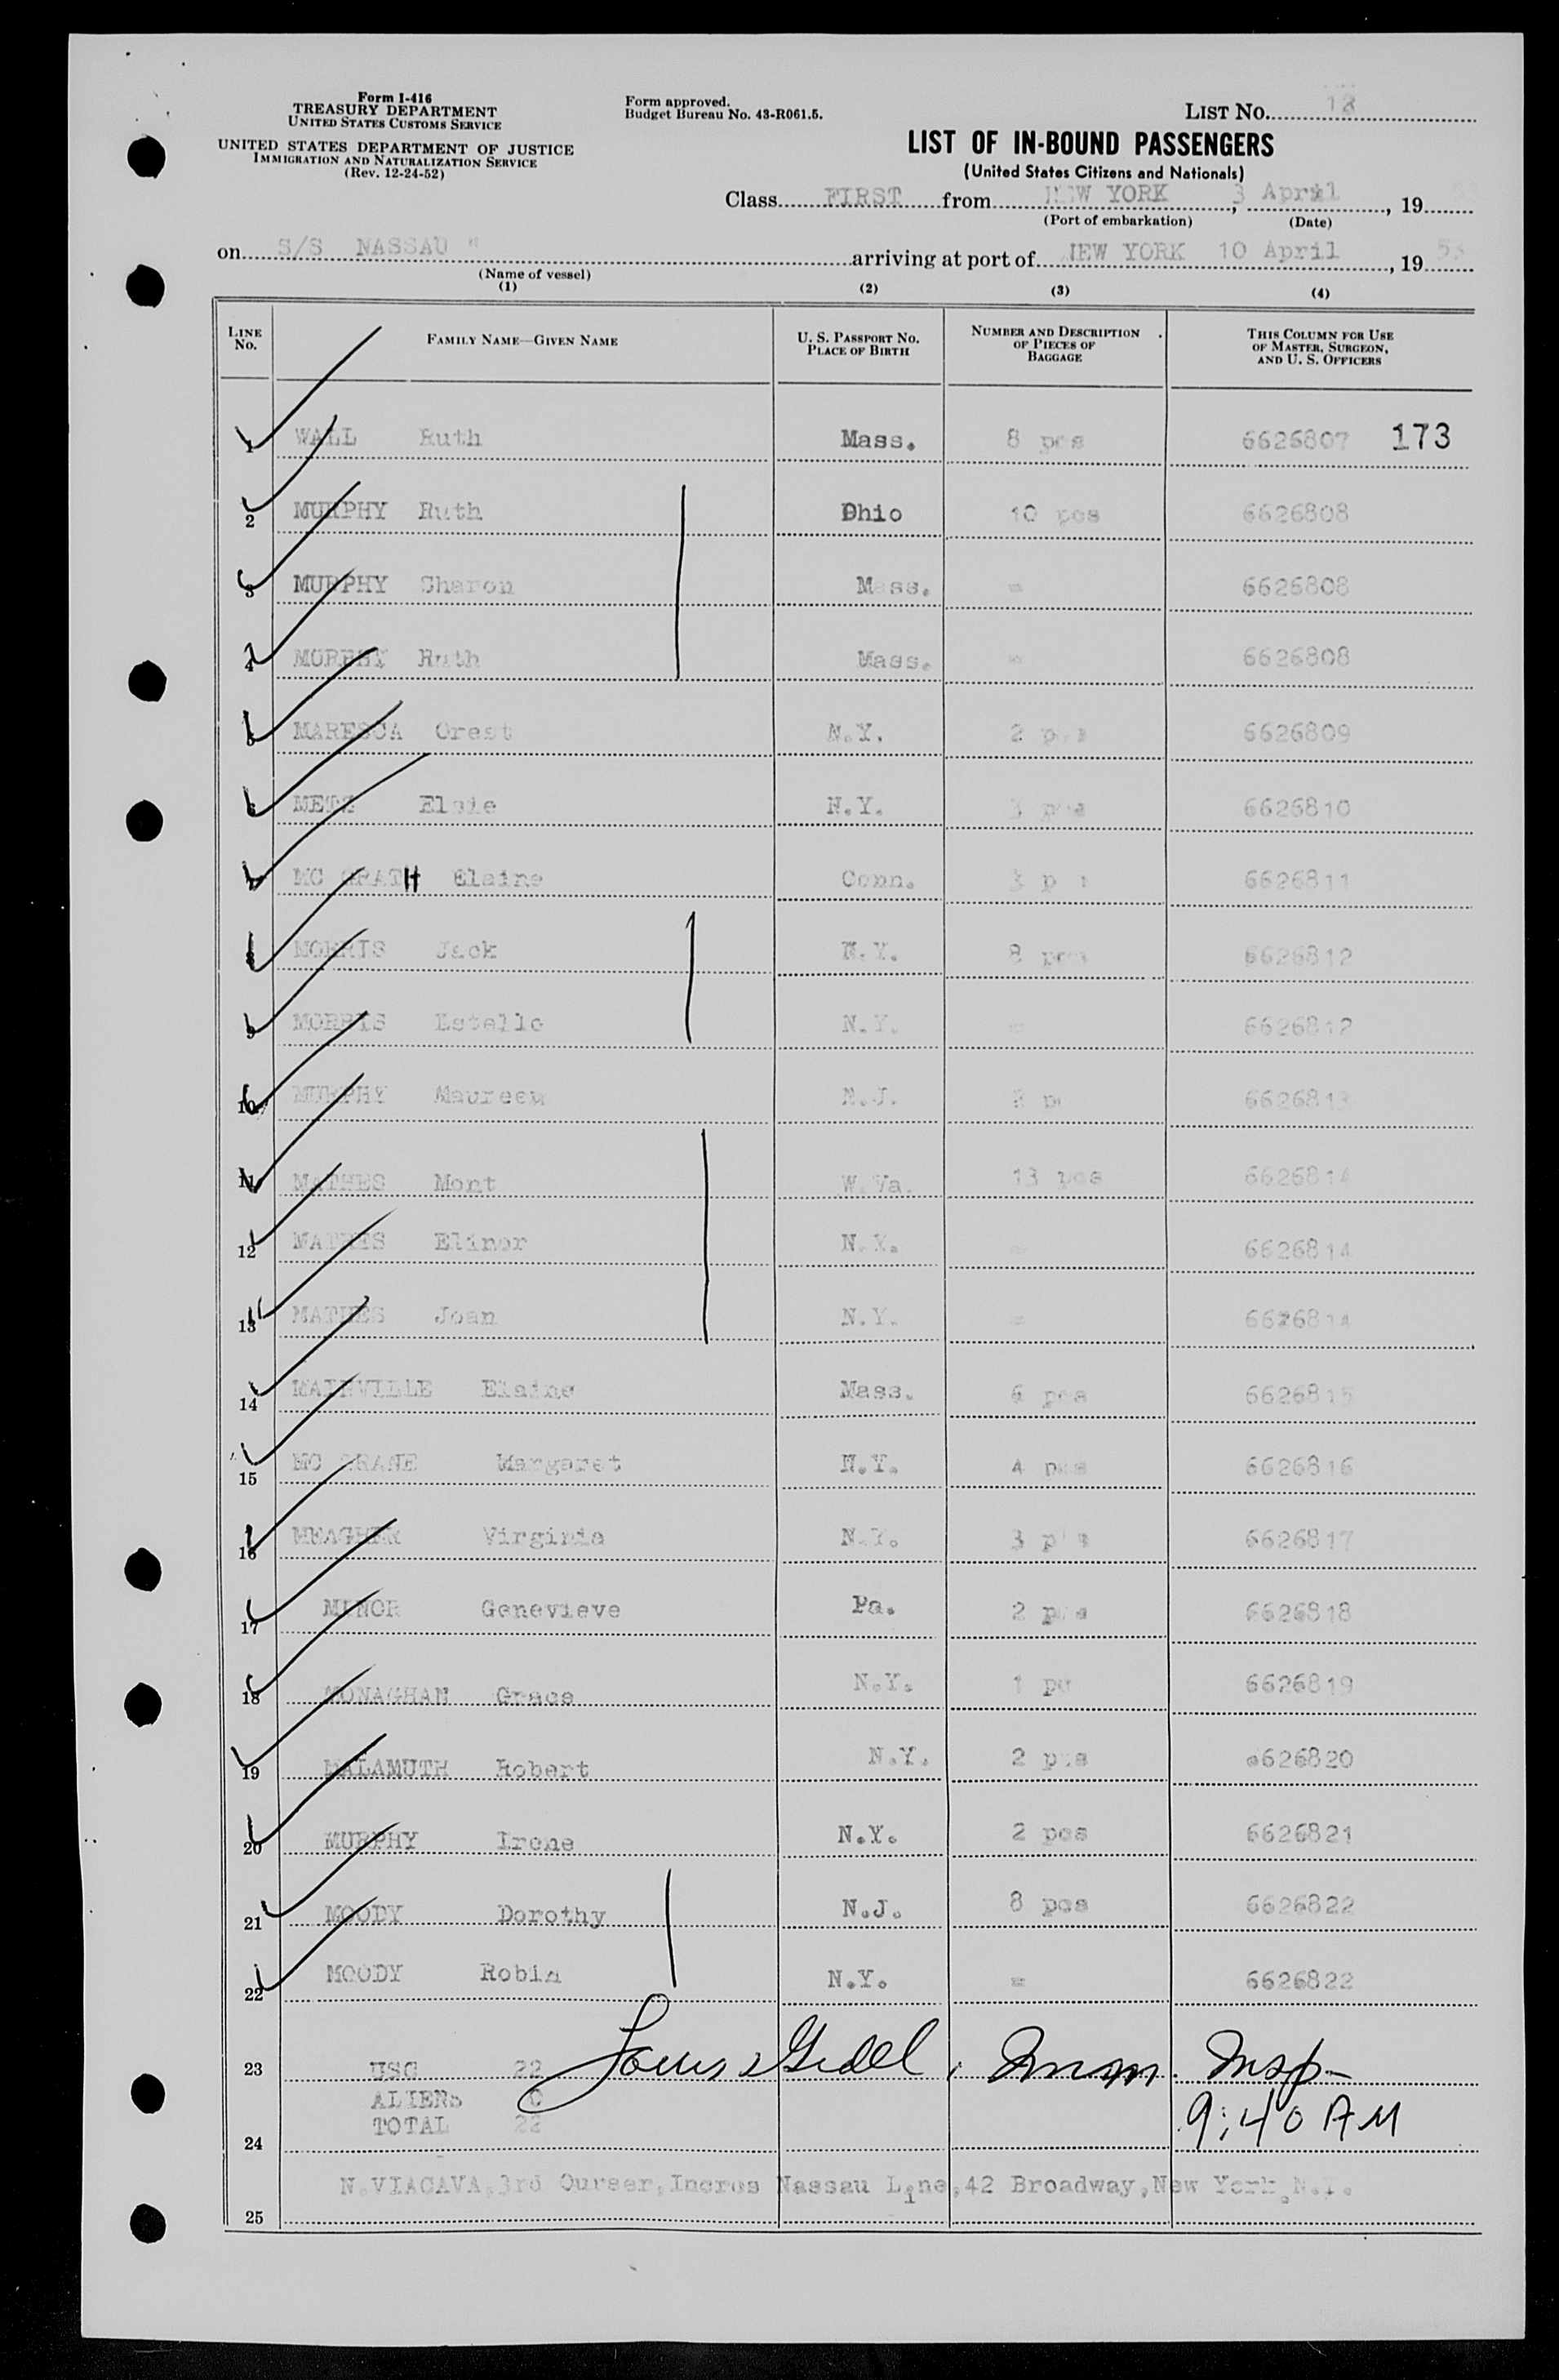 Form I-416
TREASURY DEPARTMENT
UNITED STATES CUSTOMS SERVICE
UNITED STATES DEPARTMENT OF JUSTICE
IMMIGRATION AND NATURALIZATION SERVICE
(Rev. 12-24-52)
Form approved.
Budget Bureau No. 43-R061.5.
LIST No. 18
LIST OF IN-BOUND PASSENGERS
(United States Citizens and Nationals)
Class FIRST from NEW YORK, 3 April, 19 53
(Port of embarkation) (Date)
on S/S NASSAU " arriving at port of NEW YORK 10 April, 19 53
(Name of vessel)
(1) (2) (3) (4)
LINE No. FAMILY NAME—GIVEN NAME U. S. PASSPORT No. PLACE OF BIRTH NUMBER AND DESCRIPTION OF PIECES OF BAGGAGE THIS COLUMN FOR USE OF MASTER, SURGEON, AND U. S. OFFICERS
1 WALL Ruth Mass. 8 pcs 6626807 173
2 MURPHY Ruth Ohio 10 pcs 6626808
3 MURPHY Sharon Mass. - 6626808
4 Ruth Mass. - 6626808
5 MARESCA Orest N.Y. 2 pcs 6626809
6 METZ Elsie N.Y. 3 pcs 6626810
7 MC GRATH Elaine Conn. 3 6626811
8 MORRIS Jack N.Y. 8 pcs 6626812
9 MORRIS Estelle N.Y. - 6626812
10 MURPHY Maureen N.J. 6626813
11 MATHES Mont W.Va. 13 pcs 6626814
12 MATHES Elinor N.Y. - 6626814
13 MATHES Joan N.Y. - 6626814
14 MAINVILLE Elaine Mass. 6 pcs 6626815
15 MC CRANE Margaret N.Y. 4 pcs 6626816
16 MEAGHER Virginia N.Y. 3 pcs 6626817
17 MINOR Genevieve Pa. 2 pcs 6626818
18 MONAGHAN Grace N.Y. 1 pc 6626819
19 MALAMUTH Robert N.Y. 2 pcs 6626820
20 MURPHY Irene N.Y. 2 pcs 6626821
21 MOODY Dorothy N.J. 8 pcs 6626822
22 MOODY Robin N.Y. - 6626822
23 USC 22 Louis Imm. Insp-
ALIENS 0 9:40 AM
TOTAL 22
24
N.VIACAVA,3rd Ourser,Incres Nassau Line,42 Broadway,New York,N.Y.
25